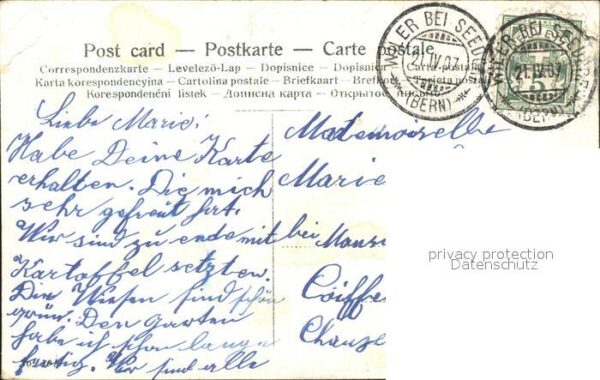 Post card — Postkarte — Carte postale
Correspondenzkarte — Levelező-Lap — Dopisnice — Dopisnica
Karta korespondencyjna — Cartolina postale — Briefkaart — Brefkort
Korespondenční lístek — Дописна карта — Открытое письмо
WILER BEI SEEDORF
21.IV.07
(BERN)
WILER BEI SEEDORF
21.IV.07
(BERN)
5
Liebe Marie!
Habe Deine Karte
erhalten. Die mich
sehr gefreut hat.
Wir sind zu ende mit
Kartoffel setzten.
Die Wiesen sind schön
grün. Den Garten
habe ich schon lange
fertig. Wir sind alle
Mademoiselle
Marie
bei Mons
Coiffe
privacy protection
Datenschutz